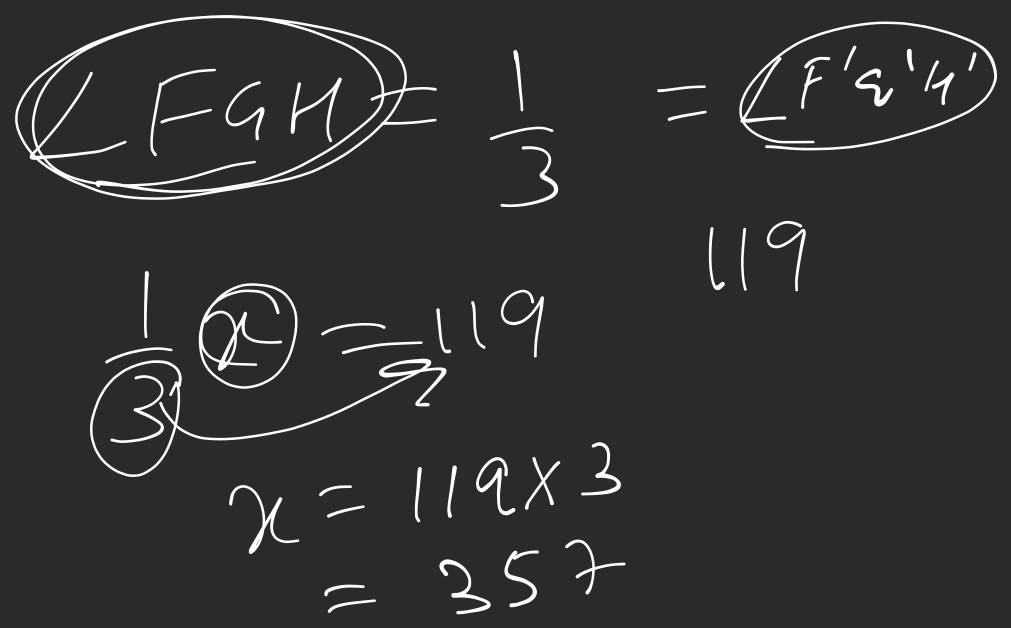 ∠FGH = 1/3 = ∠F'G'H'
119
1/3 x = 119
x = 119 x 3
= 357